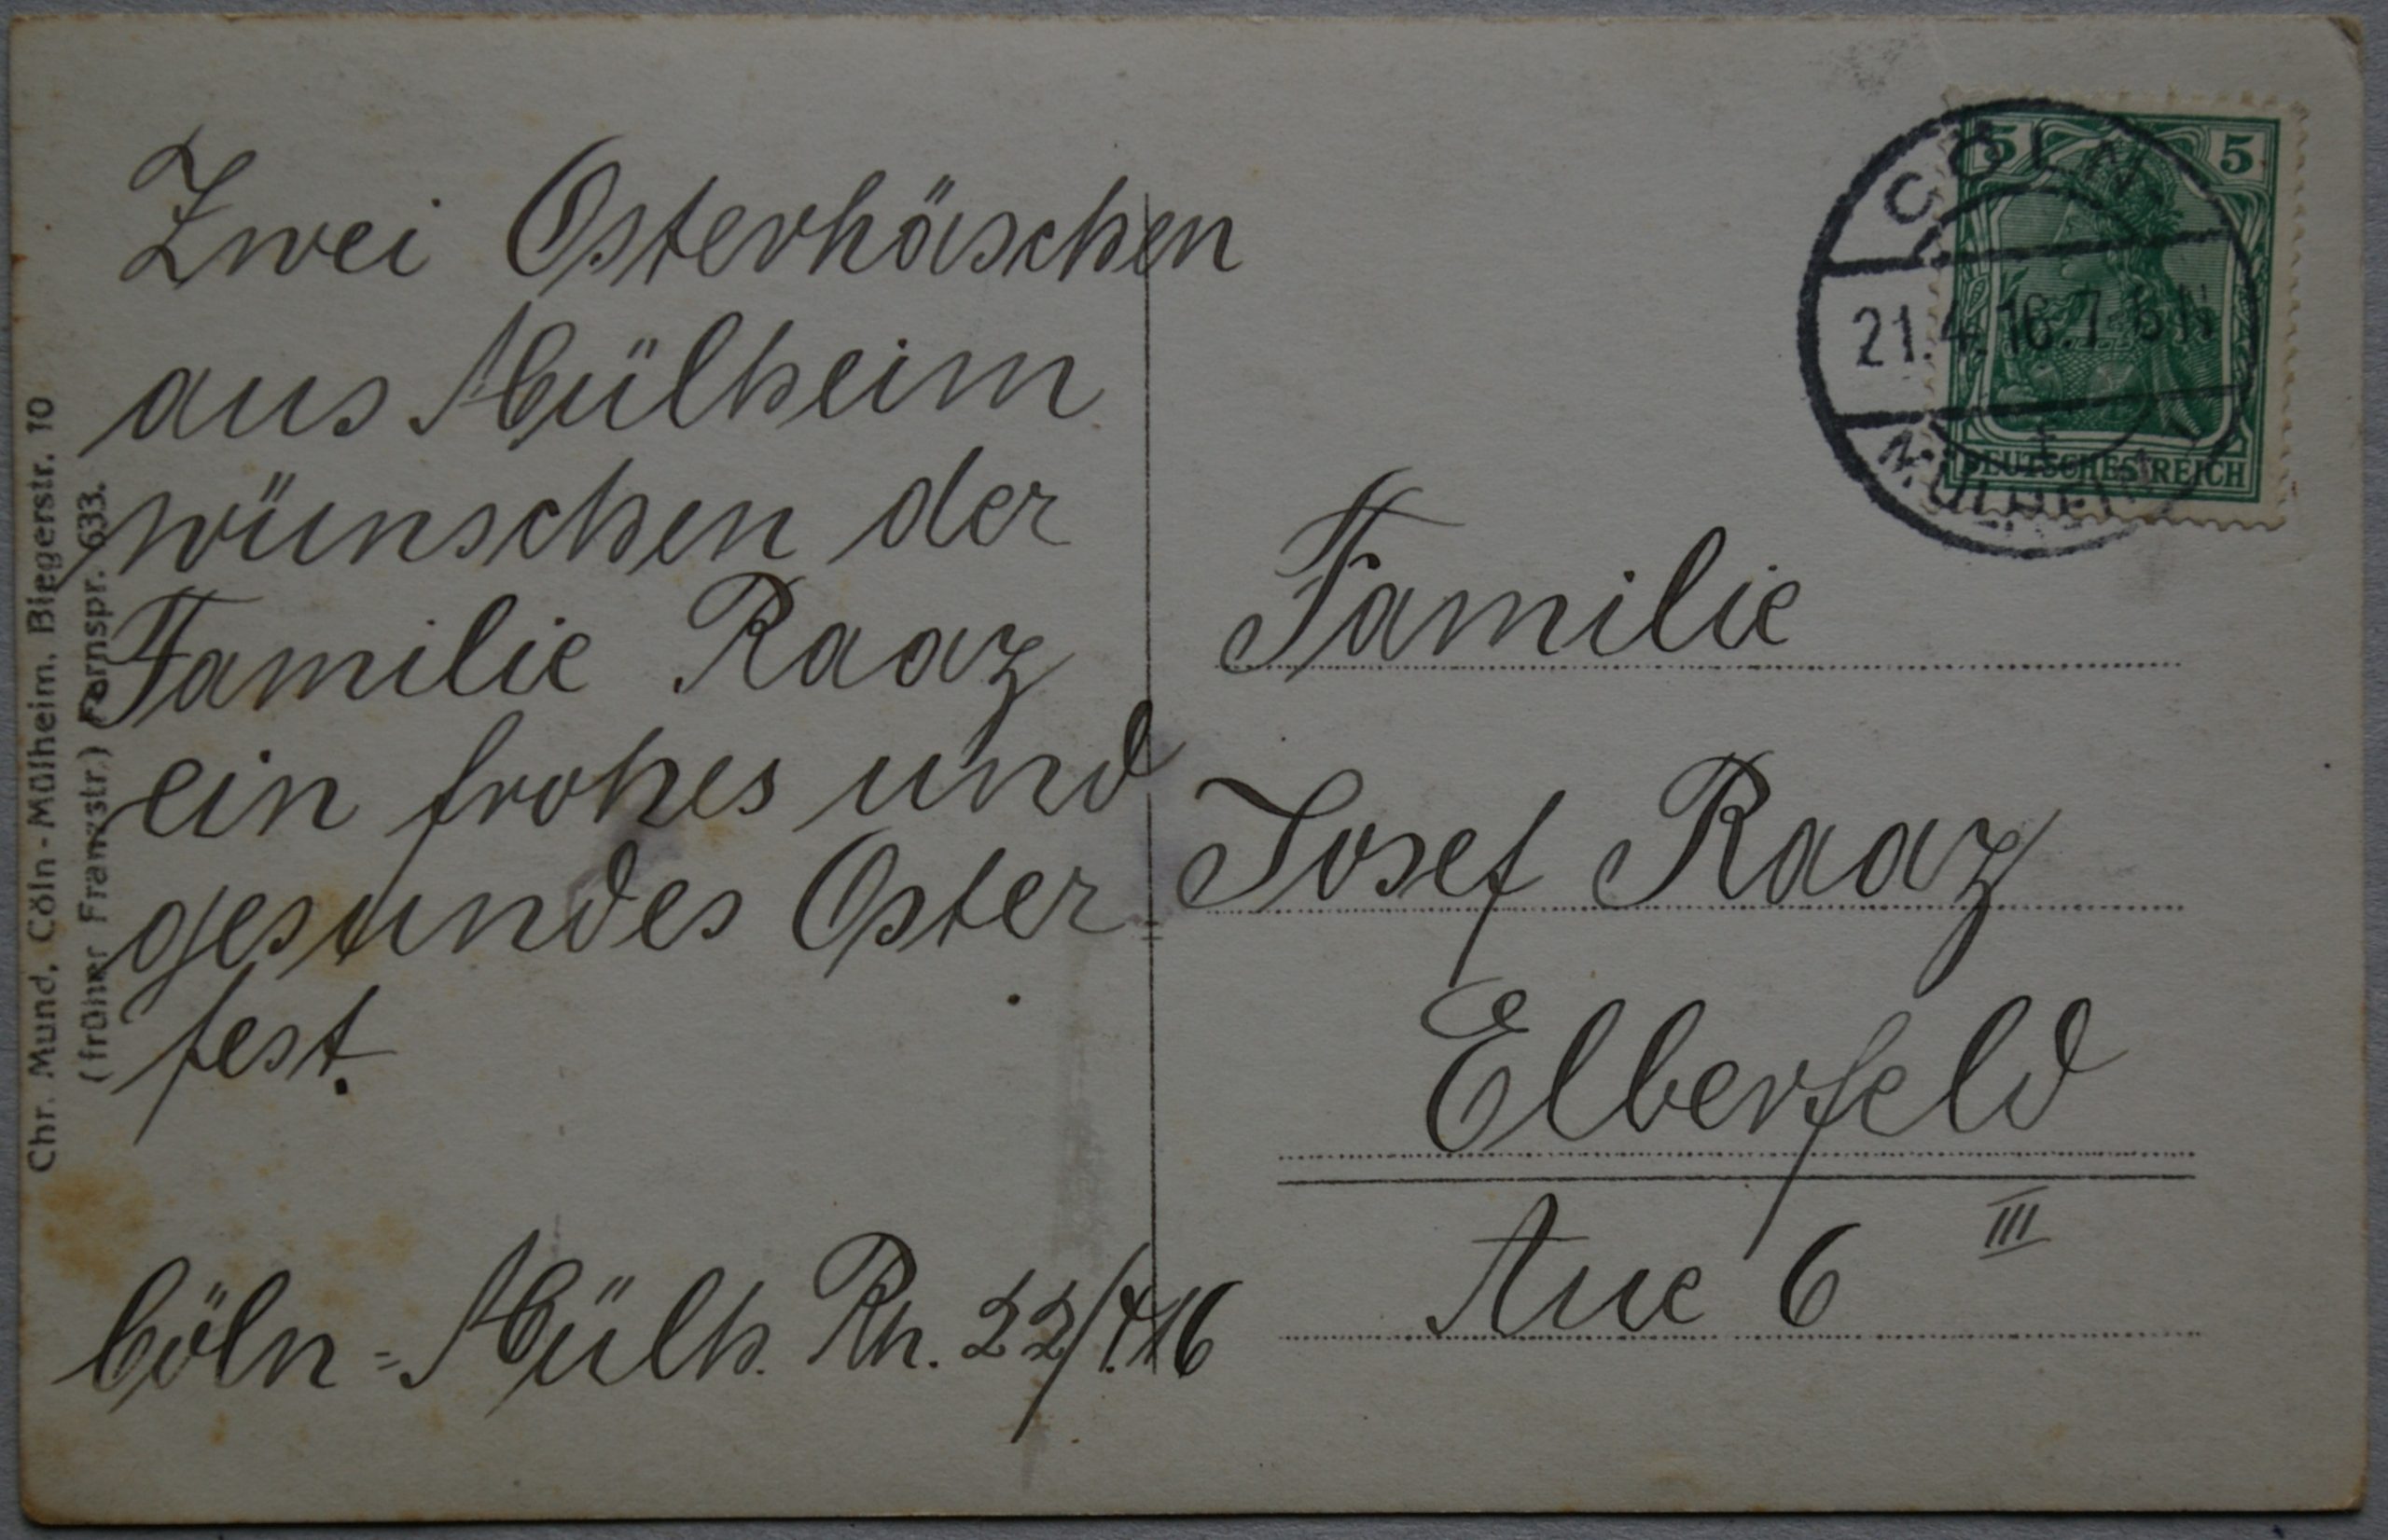 Zwei Osterhäschen
aus Mülheim
wünschen der
Familie Raaz
ein frohes und
gesundes Oster=
fest.
Cöln=Mülh. Rh. 22/4.16
Familie
Josef Raaz
Elberfeld
Aue 6 III
Chr. Mund, Cöln-Mülheim, Biegerstr. 10
(früher Franzstr.) Fernspr. 633.
CÖLN
21.4.16.7
MÜLHEIM
5 5
DEUTSCHES REICH